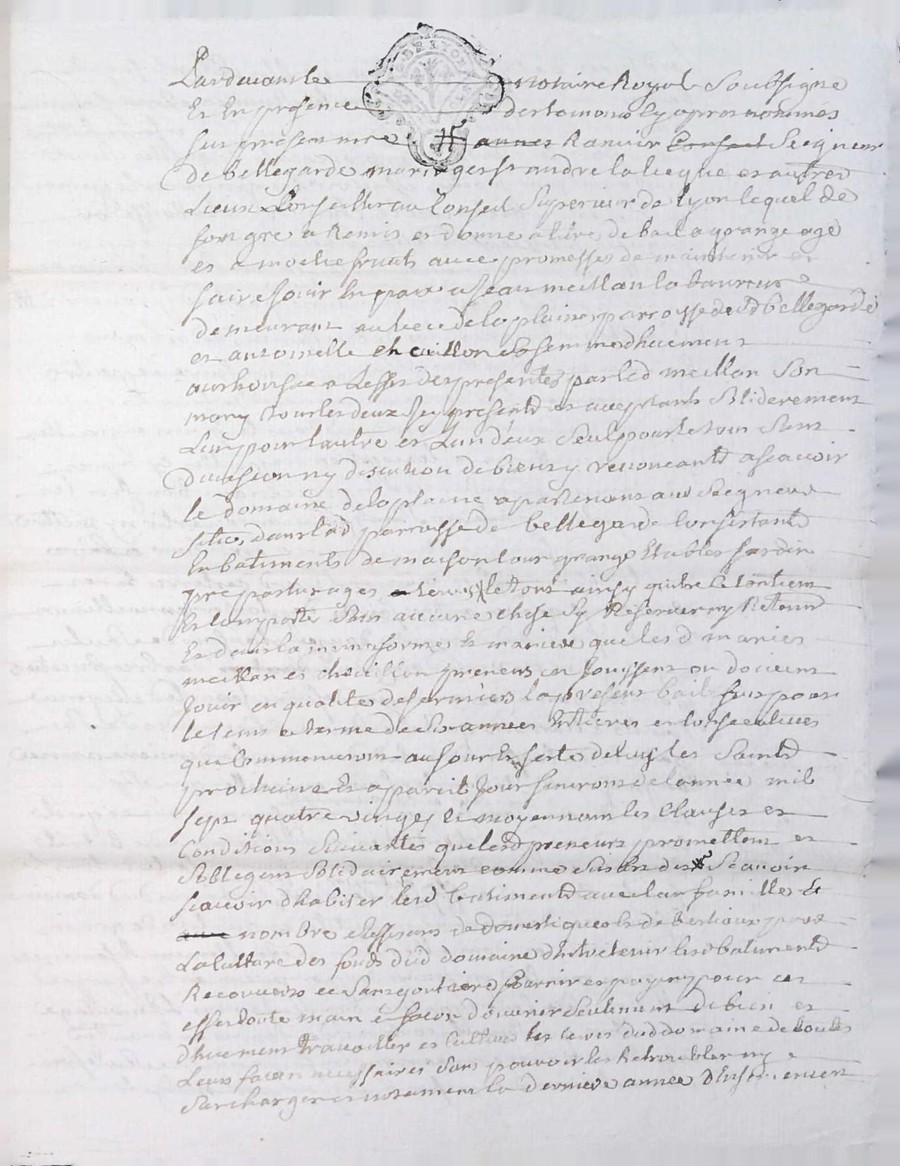 Pardevant le notaire Royal Soubsigné
Et En presence des temoins cy apres nommés
fut present mre annes Ranvier Conseil Seigneur
De bellegarde maringes st andre la lieque et autres
Lieux Conseiller au Conseil Superieur de Lyon lequel de
son gre a Remis et donne a titre de bail a grangeage
et a moetie fruits avec promesses de maintenir et
faire jouir En paix a jean meillan laboureur
demeurant au lieu de la plaine parroisse dud bellegarde
et antoinette chatillon sa femme
authorisée a L'effet des presentes par led meillan Son
mary tous les deux icy presents et acceptants Soliderement
L'un pour L'autre et L'un d'eux Seul pour le tout Sans
Division ny discution de biens y renonceants a scavoir
le domaine de la plaine apartenant aud Seigneur
scitué dans lad parroisse de bellegarde Consistant
En batiments de maison cour grange Etables jardin
pré pasturages terres le tout ainsy qu'il se Contient
Et Comporte Sans aucune chose S'y Reserver ny Retenir
Et dans la meme forme Et maniere que lesd mariés
meillan et chatillon preneurs en jouissent ou doivent
jouir en qualité de fermiers la present bail fait pour
le tems et terme de Six années Entieres et Consecutives
que Commenceront au jour Et feste de tous les Saints
prochaine Et a pareil jour finiront de l'année mil
sept quatre vingt Et moyennant les Clauses et
Conditions Suivantes que lesd preneurs promettent et
S'obligent Solidairement comme Sus est dit Scavoir
scavoir d'habiter lesd batiments avec leur famille Et
nombre suffisant de domestiques et de Bestiaux pour
La Culture des fonds dud domaine d'entretenir lesd batiments
Recouverts et Sans goutiere fournir et payer pour cet
effet toute main et façon d'ouvrier Seulement de bien et
duement travailler et cultiver les terres dud domaine de toutes
Leurs façon necessaires Sans pouvoir les Retroubler ny
Surcharger et notament la derniere année D'Ensemencer